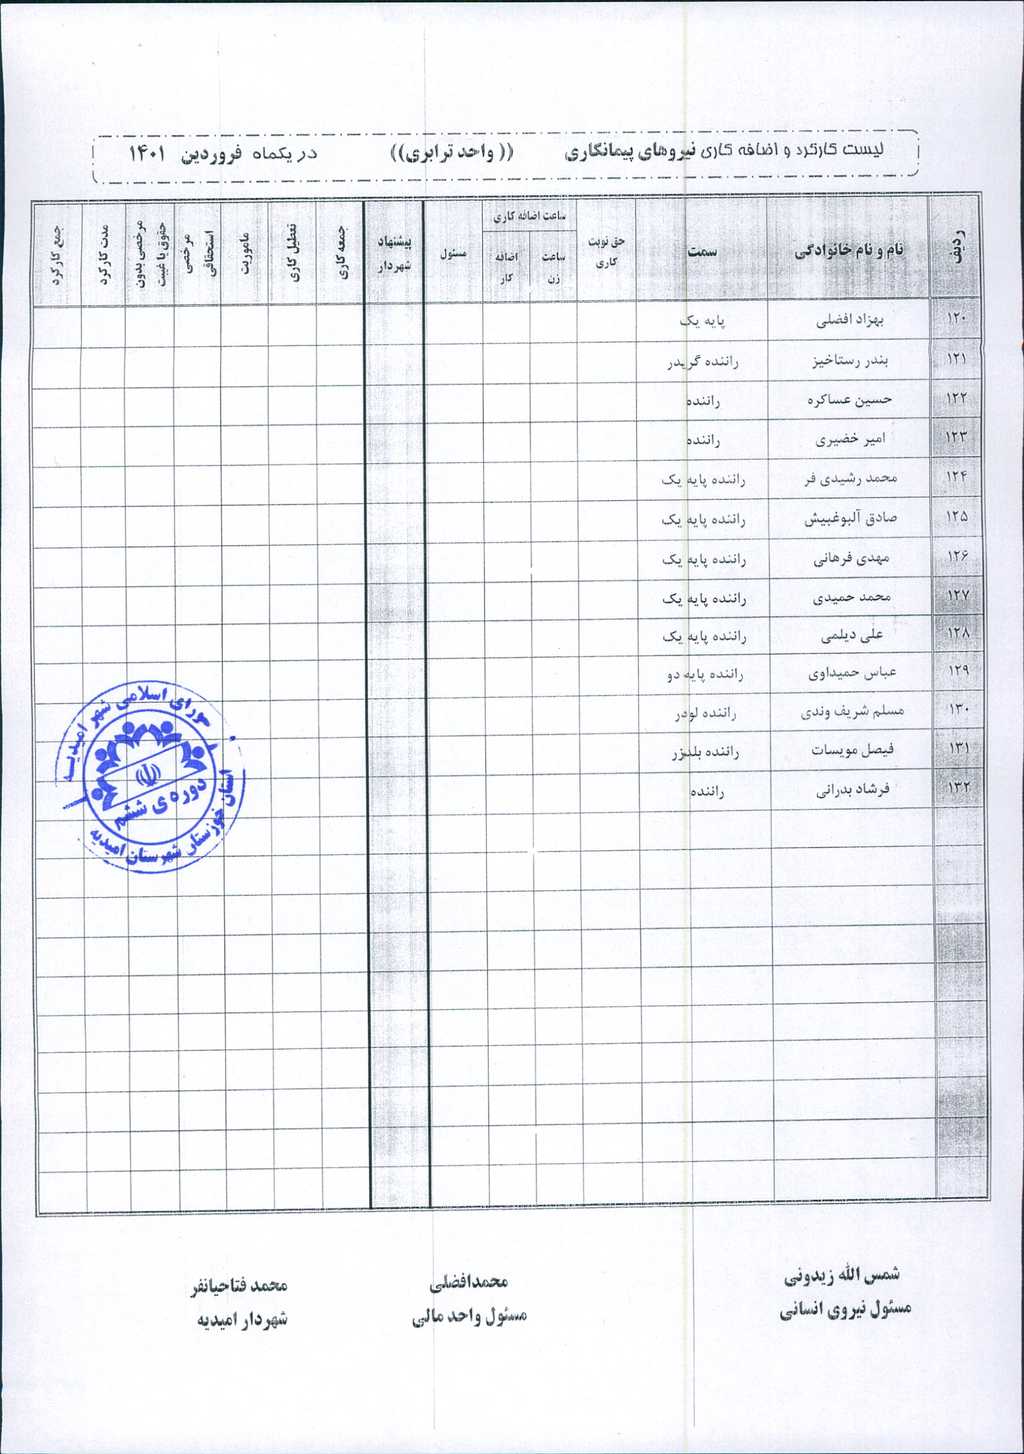 لیست کارکرد و اضافه کاری نیروهای پیمانگاری (( واحد ترابری)) در یکماه فروردین ۱۴۰۱
ردیف نام و نام خانوادگی سمت حق نوبت کاری ساعت اضافه کاری ساعت زن اضافه کار مسئول پیشنهاد شهردار جمعه کاری تعطیل کاری ماموریت مرخصی استحقاقی مرخصی بدون حقوق یا غیبت مدت کارکرد جمع کارکرد
۱۲۰ بهزاد افضلی پایه یک
۱۲۱ بندر رستاخیز راننده گریدر
۱۲۲ حسین عساکره راننده
۱۲۳ امیر خضیری راننده
۱۲۴ محمد رشیدی فر راننده پایه یک
۱۲۵ صادق آلبوغبیش راننده پایه یک
۱۲۶ مهدی فرهانی راننده پایه یک
۱۲۷ محمد حمیدی راننده پایه یک
۱۲۸ علی دیلمی راننده پایه یک
۱۲۹ عباس حمیداوی راننده پایه دو
۱۳۰ مسلم شریف وندی راننده لودر
۱۳۱ فیصل مویسات راننده بلدزر
۱۳۲ فرشاد بدرانی راننده
شورای اسلامی شهر امیدیه
دوره ی ششم
استان خوزستان شهرستان امیدیه
شمس الله زیدونی محمدافضلی محمد فتاحیانفر
مسئول نیروی انسانی مسئول واحد مالی شهردار امیدیه